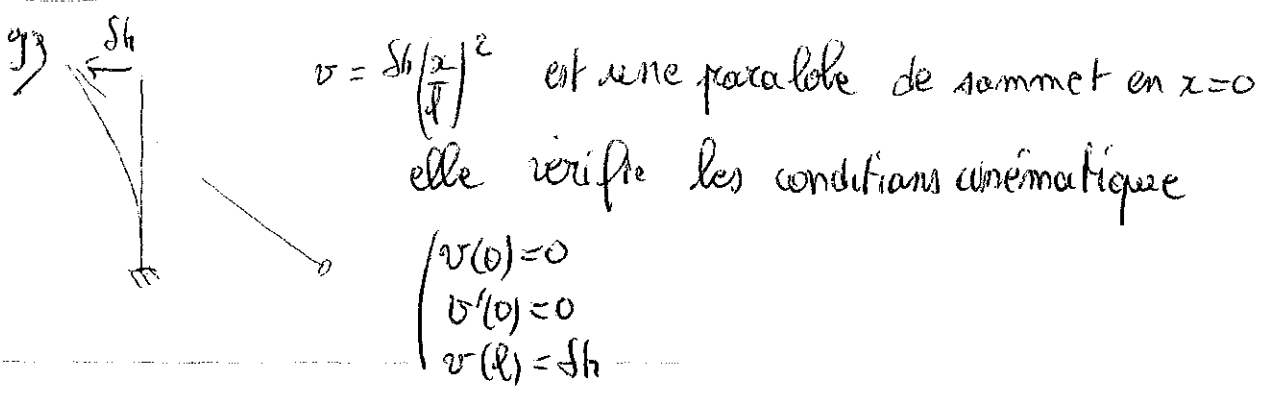 93) δh
v = δh(x/l)² est une parabole de sommet en x=0
elle vérifie les conditions cinématique
v(0)=0
v'(0)=0
v(l)=δh